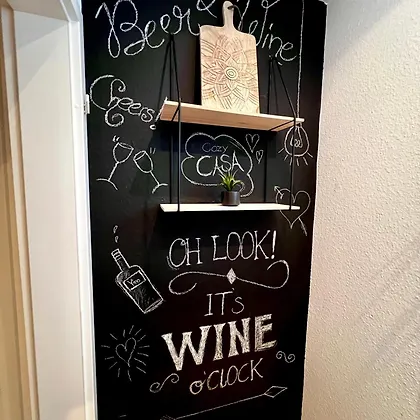 Beer & Wine
Cheers!
Cozy
CASA
OH LOOK!
IT'S
WINE
O'CLOCK